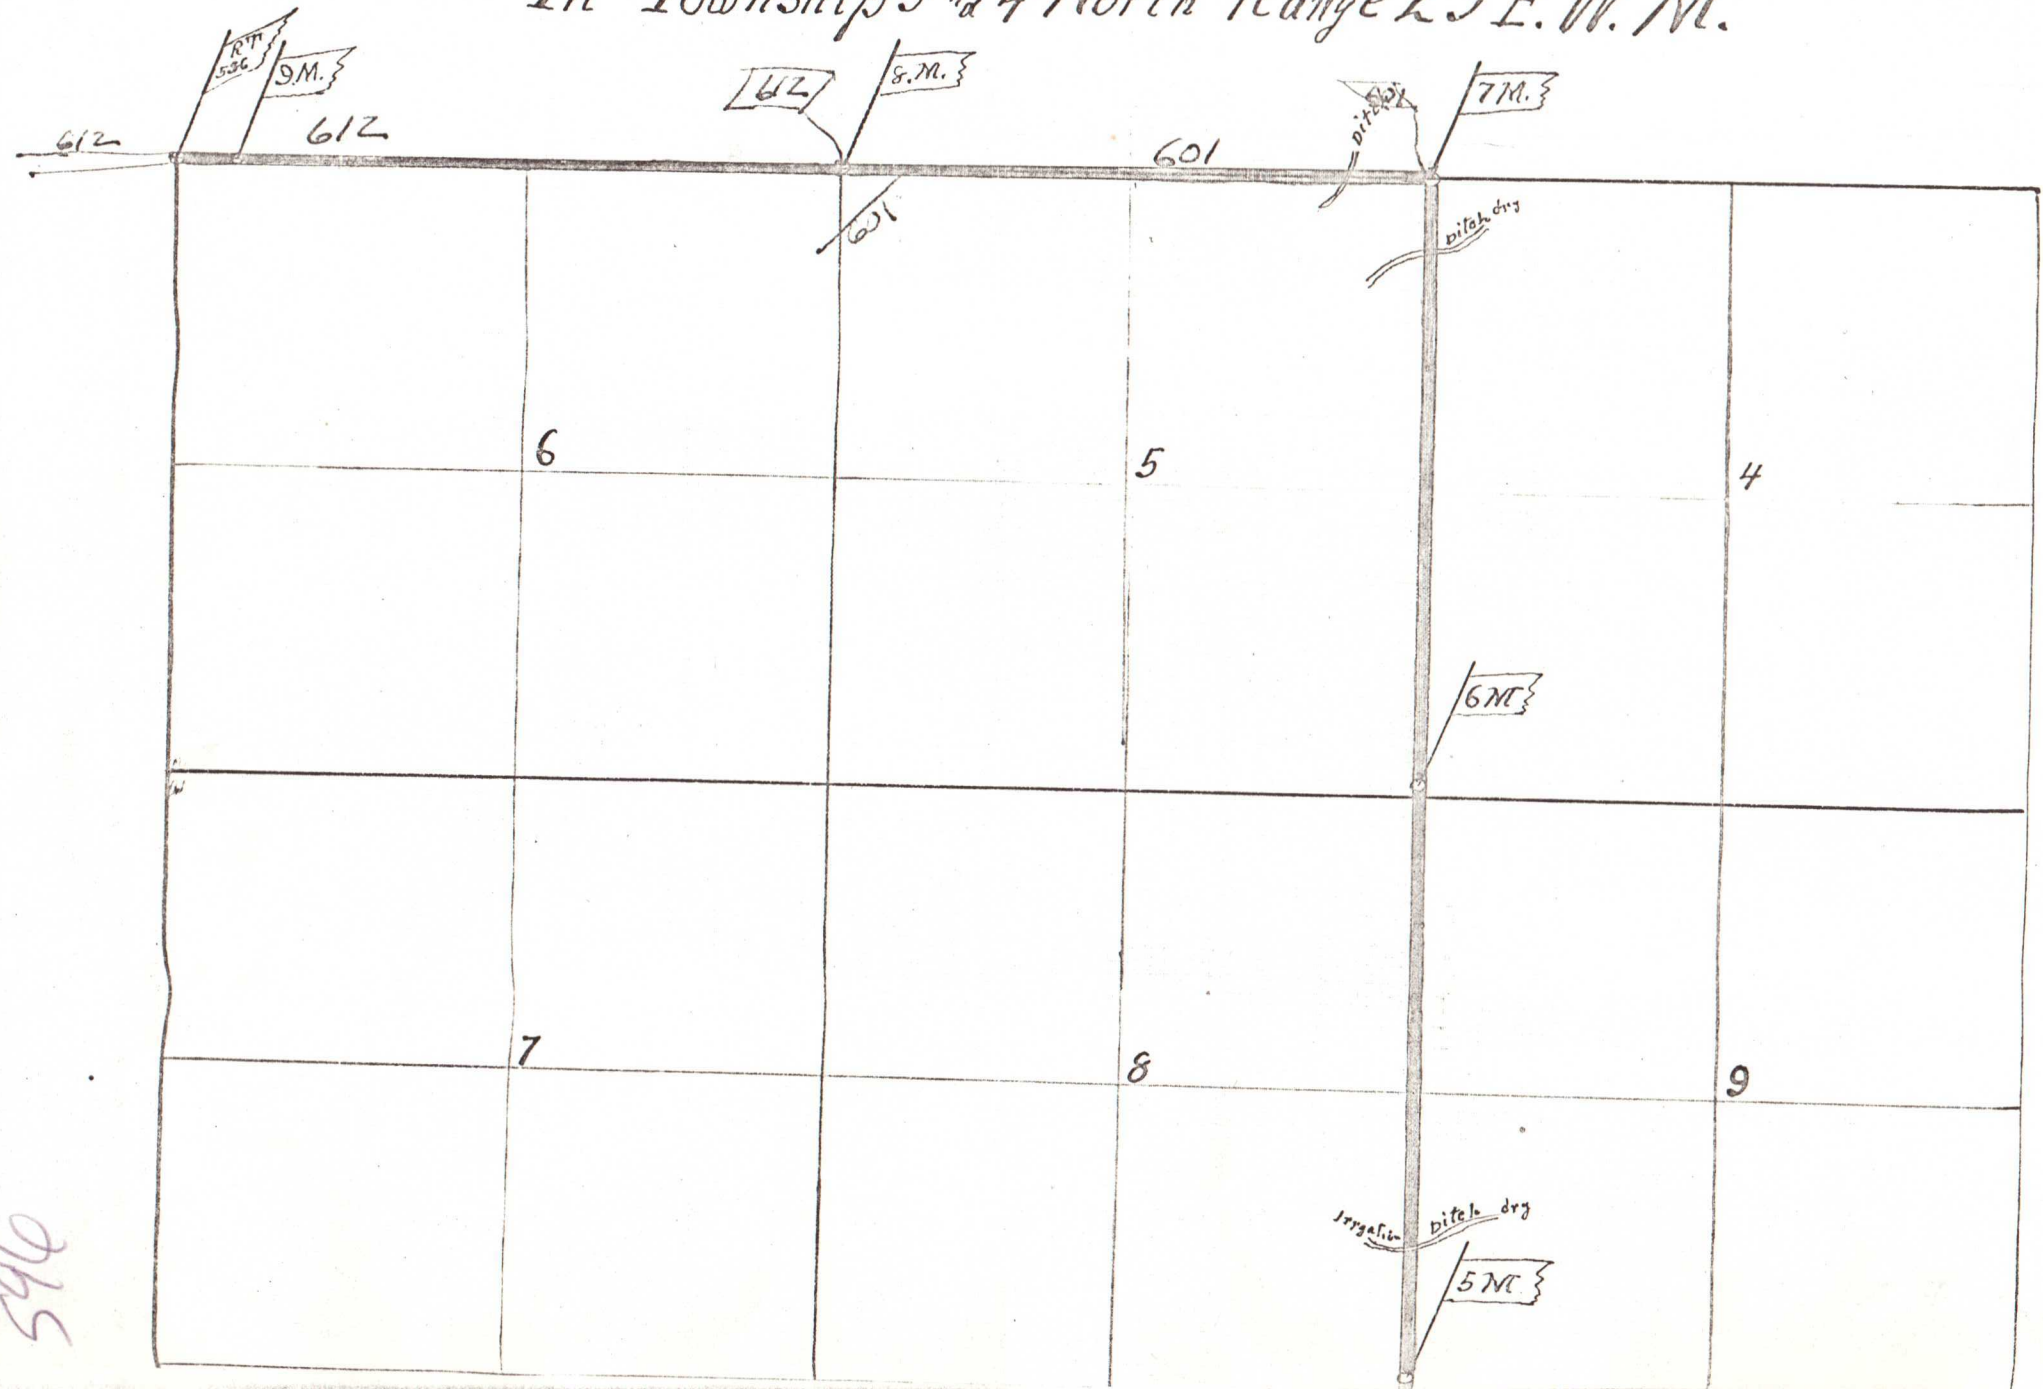 In Townships & 4 North Range 25 E. W. M.
RT
596
9 M.
612
8. M.
7 M.
612
612
601
Ditch
601
601
Ditch dry
6
5
4
6 M
7
8
9
Irrgation Ditch dry
5 M.
596